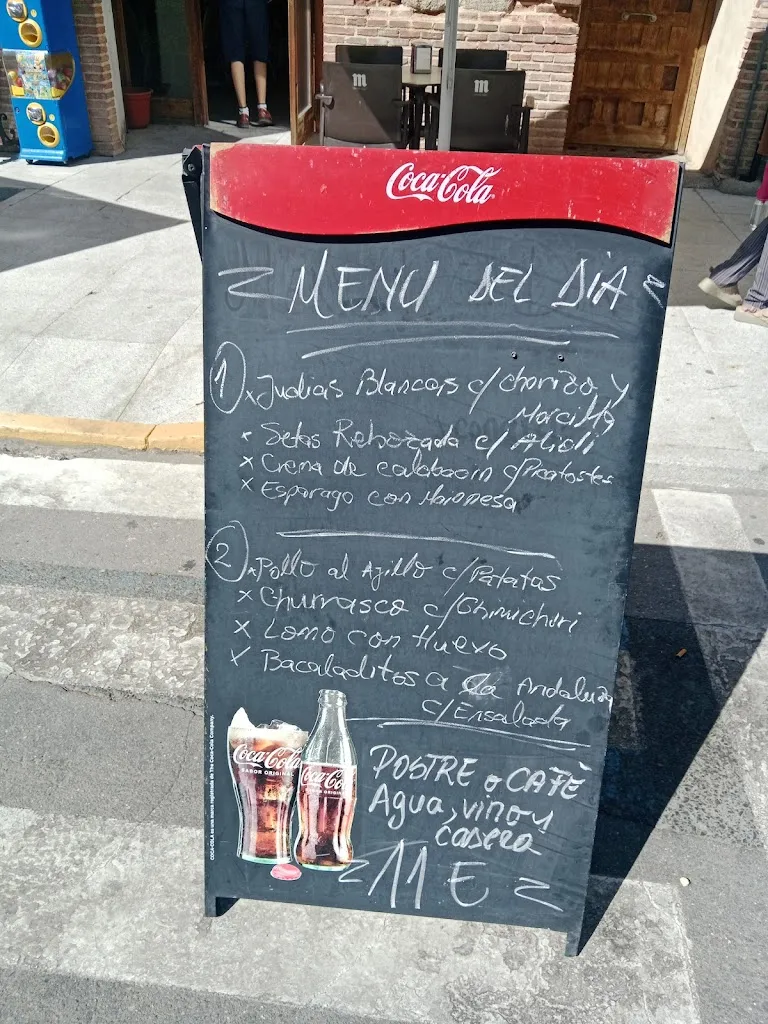 Coca-Cola
MENU DEL DIA
1 x Judias Blancas c/chorizo y
Morcilla
x Setas Rebozada c/Alioli
x Crema de calabacin c/Picatostes
x Esparago con Maionesa
2 x Pollo al Ajillo c/Patatas
x Churrasco c/Chimichuri
x Lomo con Huevo
x Bacaladitos a La Andaluza
c/Ensalada
POSTRE o CAFÈ
Agua, vino y
casera
11 E
Coca-Cola
SABOR ORIGINAL
Coca-Cola
SABOR ORIGINAL
COCA-COLA es una marca registrada de The Coca-Cola Company.